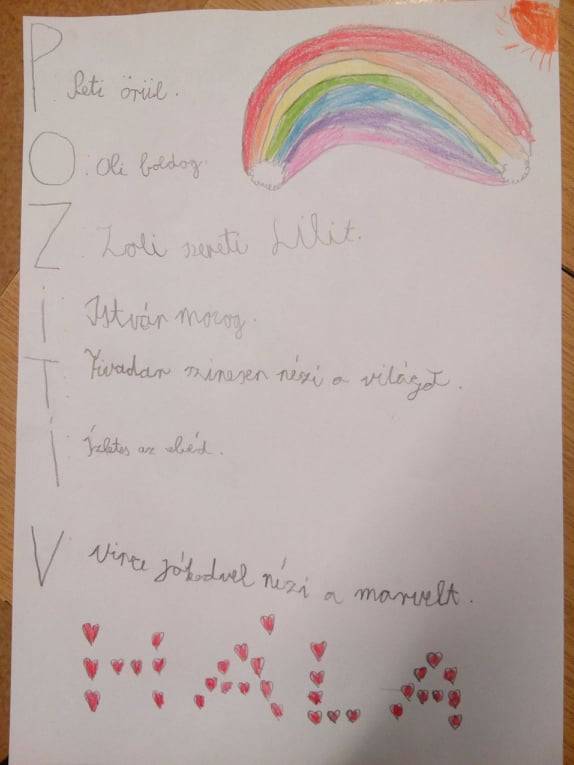 P Peti örül.
O Oli boldog.
Z Zoli szereti Lilit.
I István mozog.
T Tivadar színesen nézi a világot.
Í Ízletes az ebéd.
V Vince jókedvvel nézi a marvelt.
HÁLA